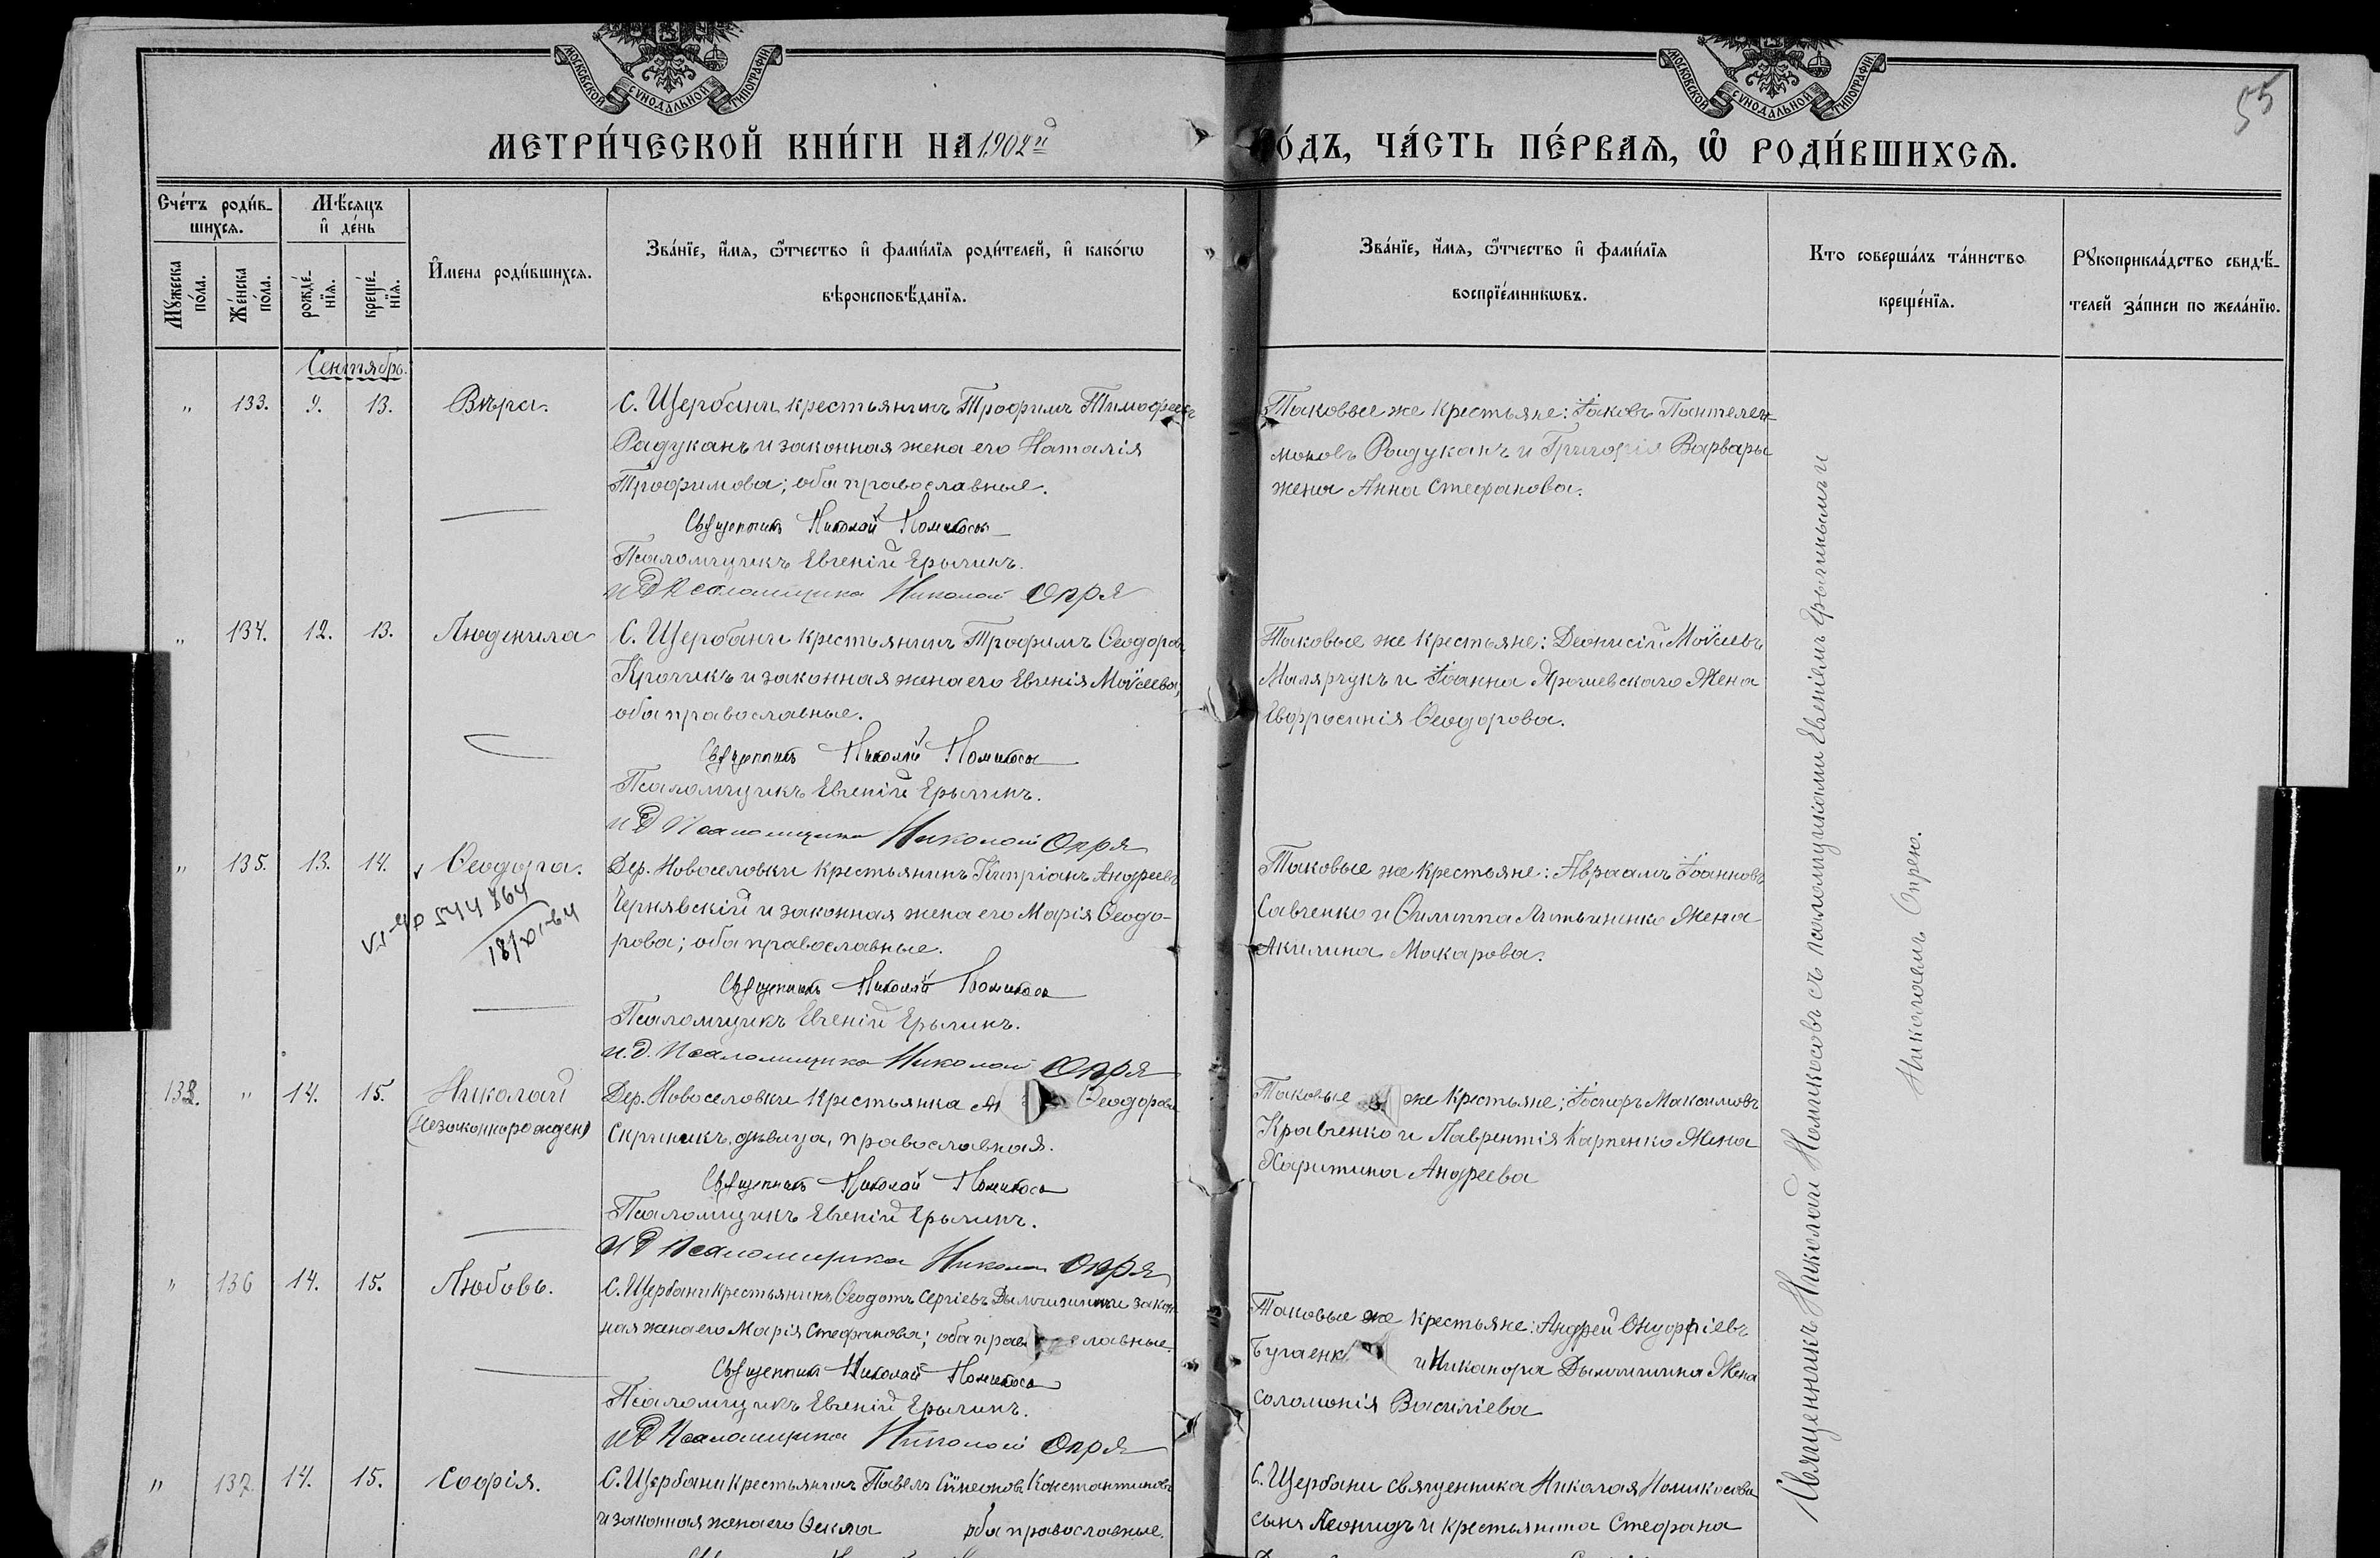 МОСКОВСКОЙ СѴНОДАЛЬНОЙ ТИПОГРАФІИ
МОСКОВСКОЙ СѴНОДАЛЬНОЙ ТИПОГРАФІИ
55
МЕТРИ́ЧЕСКОЙ КНИ́ГИ НА 1902й
ГО́ДЪ, ЧА́СТЬ ПЕ́РВАѦ, Ѡ РОДИ́ВШИХСѦ.
Сче́тъ роди́в-
шихсѧ.
Мѣ́сѧцъ
и҆ де́нь
Мꙋ́жеска
по́ла.
Же́нска
по́ла.
рожде́-
нїѧ.
креще́-
нїѧ.
И҆мена роди́вшихсѧ.
Зва́нїе, и҆́мѧ, ѻ҆́тчество и҆ фами́лїѧ роди́телей, и҆ како́гѡ
вѣроисповѣ́данїѧ.
Зва́нїе, и҆́мѧ, ѻ҆́тчество и҆ фами́лїѧ
воспрїе́мникѡвъ.
Кто соверша́лъ та́инство
креще́нїѧ.
Рꙋкоприкла́дство свидѣ́-
телей за́писи по жела́нїю.
Сентябрь.
" 133. 9. 13. Вѣра.
С. Щербани крестьянинъ Трофимъ Тимофеевъ
Радуканъ и законная жена его Наталія
Трофимова; оба православные.
Священникъ Николай Номикосовъ
Псаломщикъ Евгеній Ерычинъ.
и д Псаломщика Николай Опря
Таковые же крестьяне: Іаковъ Пантелеи-
моновъ Радуканъ и Григорія Варвары
жена Анна Стефанова.
" 134. 12. 13. Людмила
С. Щербани крестьянинъ Трофимъ Ѳеодоровъ
Крочикъ и законная жена его Евгенія Моѵсеева,
оба православные.
Священникъ Николай Номикосовъ
Псаломщикъ Евгеній Ерычинъ.
и д Псаломщика Николай Опря
Таковые же крестьяне: Деонисій Моѵсеевъ
Малярчукъ и Іоанна Ярошевскаго жена
Евфросинія Ѳеодорова.
" 135. 13. 14. Ѳеодора.
VI-ЯР 544864
18/XI-64
Дер. Новоселовки крестьянинъ Кипріанъ Андреевъ
Чернявскій и законная жена его Марія Ѳеодо-
рова; оба православные.
Священникъ Николай Номикосовъ
Псаломщикъ Евгеній Ерычинъ.
и. д. Псаломщика Николай Опря
Таковые же крестьяне: Авраамъ Іоанновъ
Савченко и Филиппа Литвиненко жена
Акилина Макарова.
133. " 14. 15. Николай
(незаконнорожден)
Дер. Новоселовки крестьянка Ѳеодорова
Скрипникъ, дѣвица, православная.
Священникъ Николай Номикосовъ
Псаломщикъ Евгеній Ерычинъ.
и д Псаломщика Николай Опря
Таковые же крестьяне; Іосифъ Максимовъ
Кравченко и Лаврентія Карпенко жена
Харитина Андреева
" 136 14. 15. Любовь.
С. Щербани крестьянинъ Ѳеодотъ Сергіевъ и закон
ная жена его Марія Стефанова; оба православные.
Священникъ Николай Номикосовъ
Псаломщикъ Евгеній Ерычинъ.
и д Псаломщика Николай Опря
Таковые же крестьяне: Андрей Онуфріевъ
Бугаенк и Никанора жена
Соломонія Василіева
" 137. 14. 15. Софія.
С. Щербани крестьянинъ Павелъ Сѵмеоновъ Константиновъ
и законная жена его Ѳекла оба православные.
С. Щербани священника Николая Номикосова
сынъ Леонидъ и крестьянина Стефана
Священникъ Николай Номикосовъ съ псаломщиками Евгеніемъ Ерычинымъ и
Николаемъ Опрею.